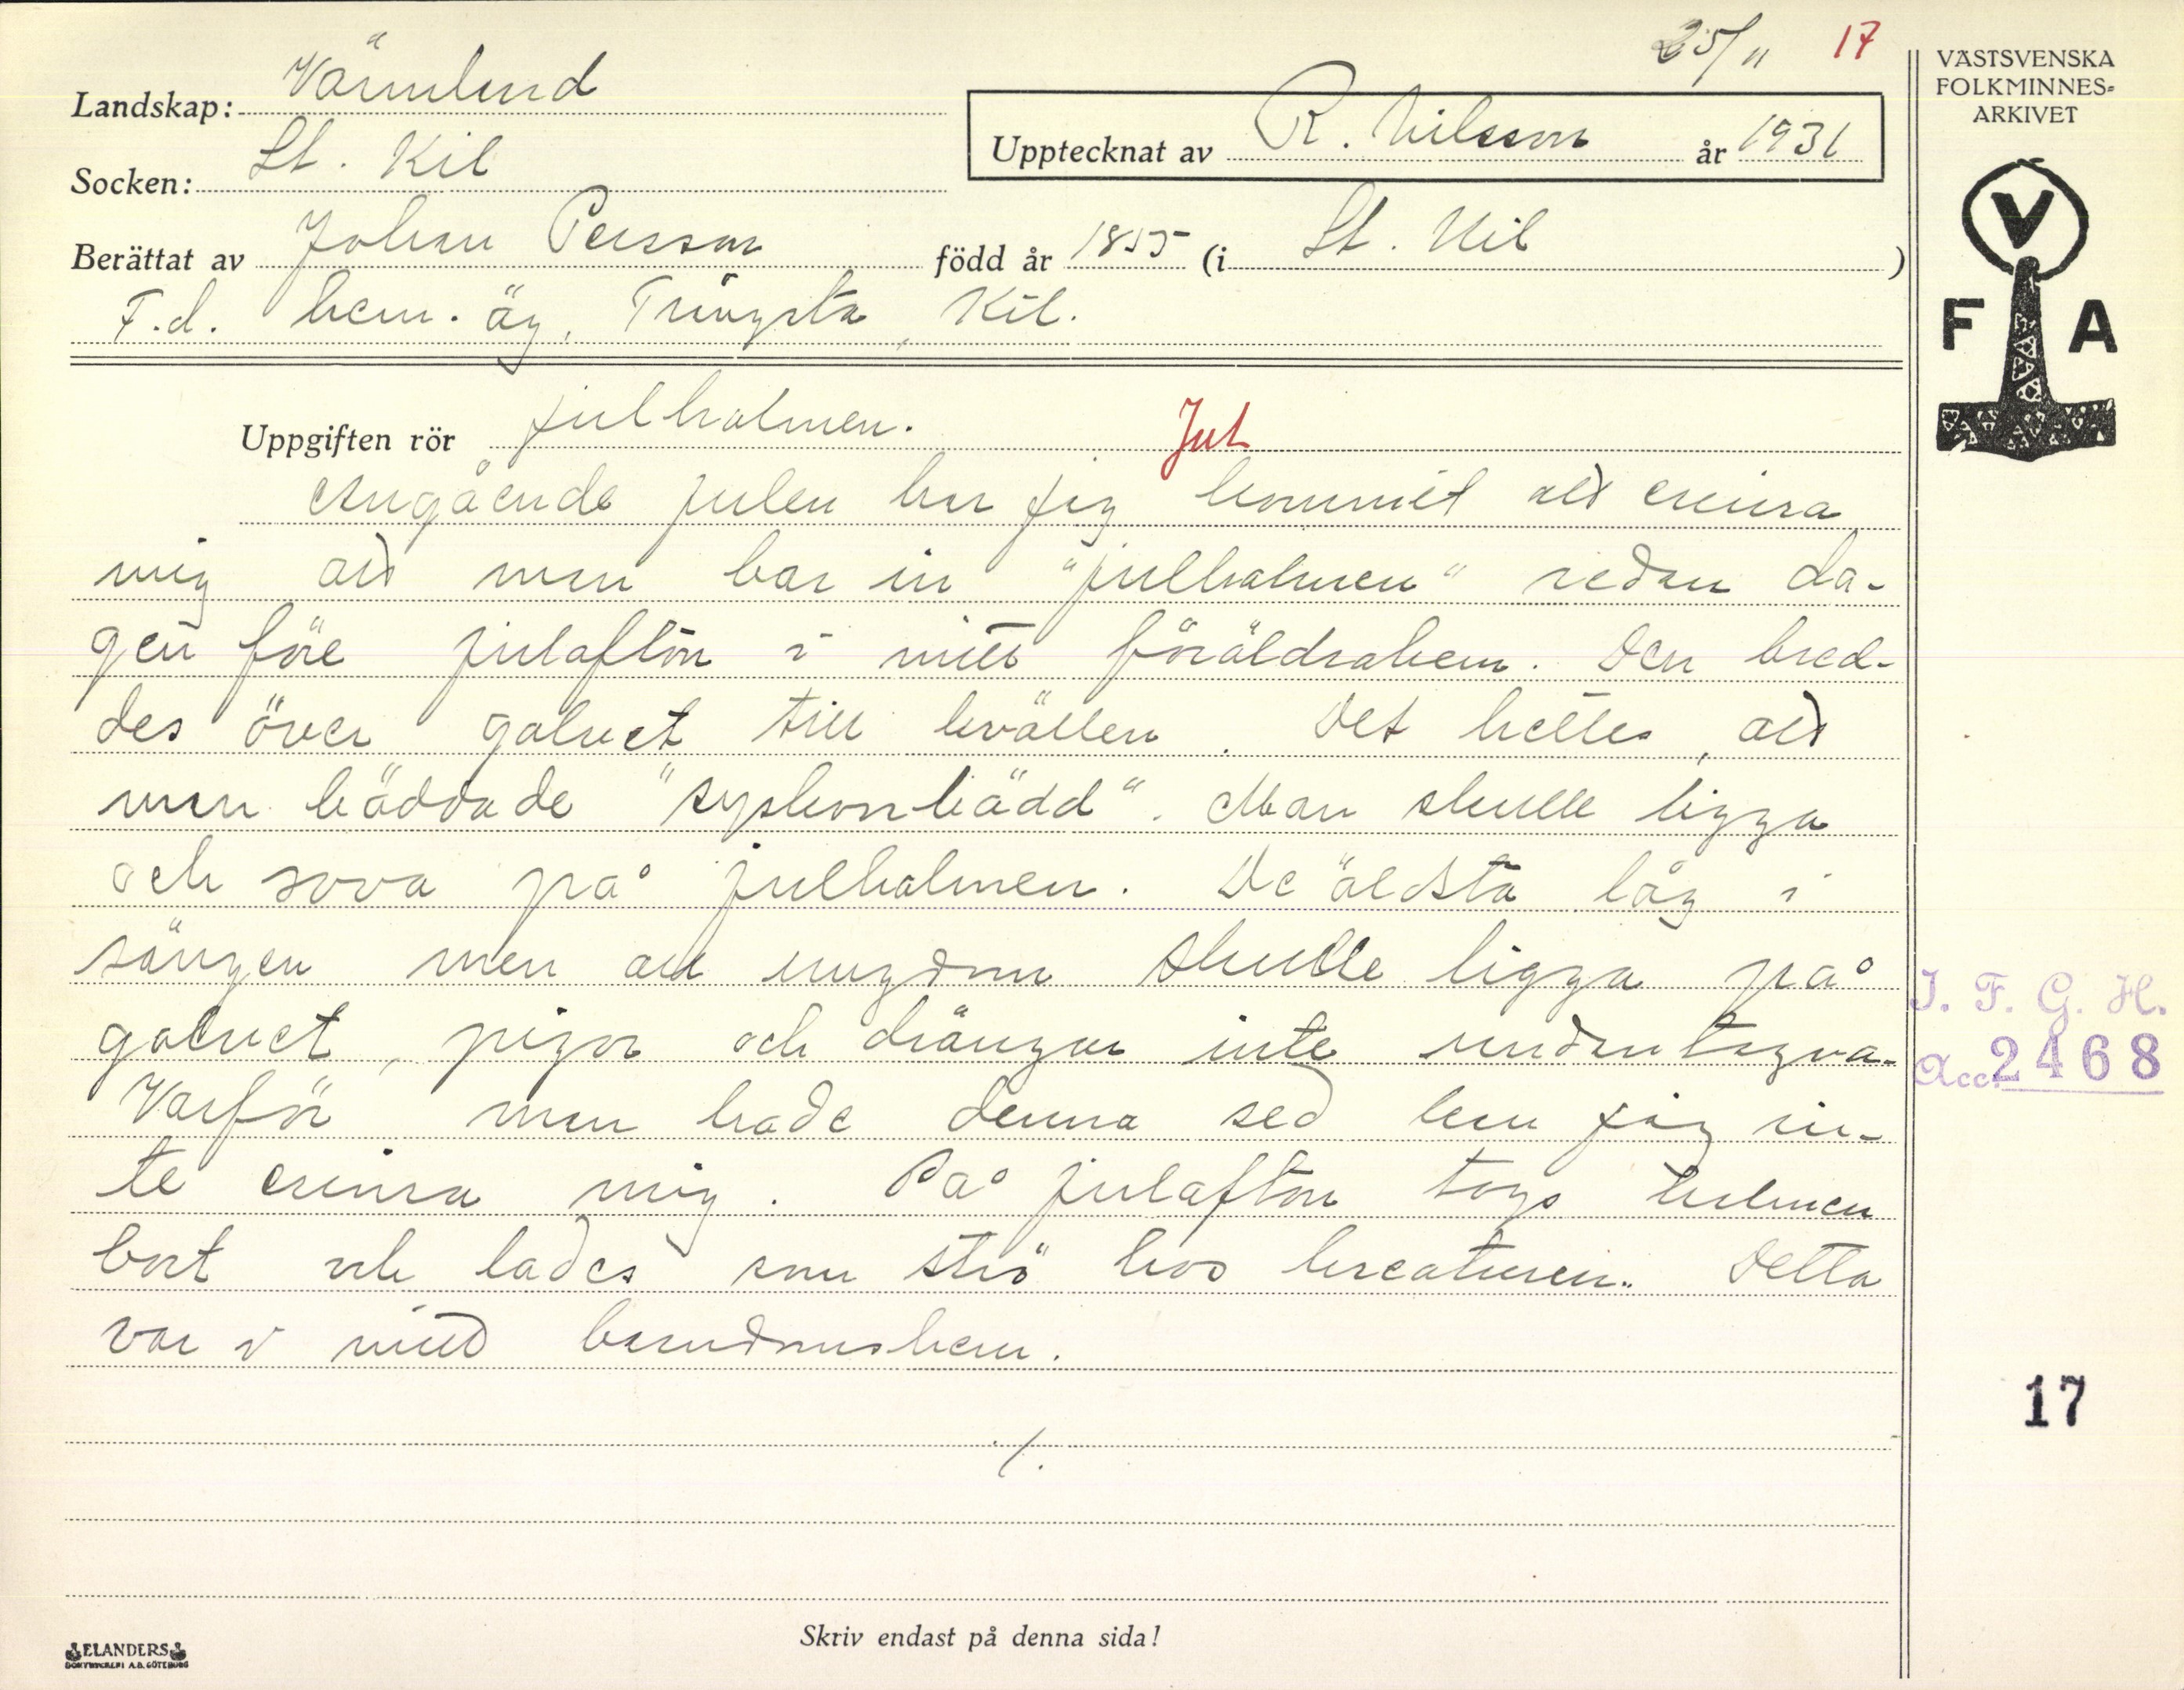 25/11 17
Landskap: Värmland
Socken: St. Kil
Upptecknat av R. Nilsson år 1931
Berättat av Johan Persson född år 1855 (i St. Kil)
F.d. hem. äg. Kil.
Uppgiften rör julhalmen. Jul
Angående julen har jag kommit att erinra
mig att man bar in "julhalmen" redan da-
gen före julafton i mitt föräldrahem. Den bred-
des över golvet till kvällen. Det hettes, att
man bäddade "syskonbädd". Man skulle ligga
och sova på julhalmen. De äldsta låg i
sängen men all ungdom skulle ligga på
golvet, pigor och drängar inte undantagna.
Varför man hade denna sed kan jag in-
te erinra mig. På julafton togs halmen
bort och lades som strö hos kreaturen. Detta
var i mitt barndomshem.
./.
Skriv endast på denna sida!
ELANDERS
BOKTRYCKERI A.B. GÖTEBORG
VÄSTSVENSKA
FOLKMINNES=
ARKIVET
V
F A
I. F. G. H.
Acc. 2468
17